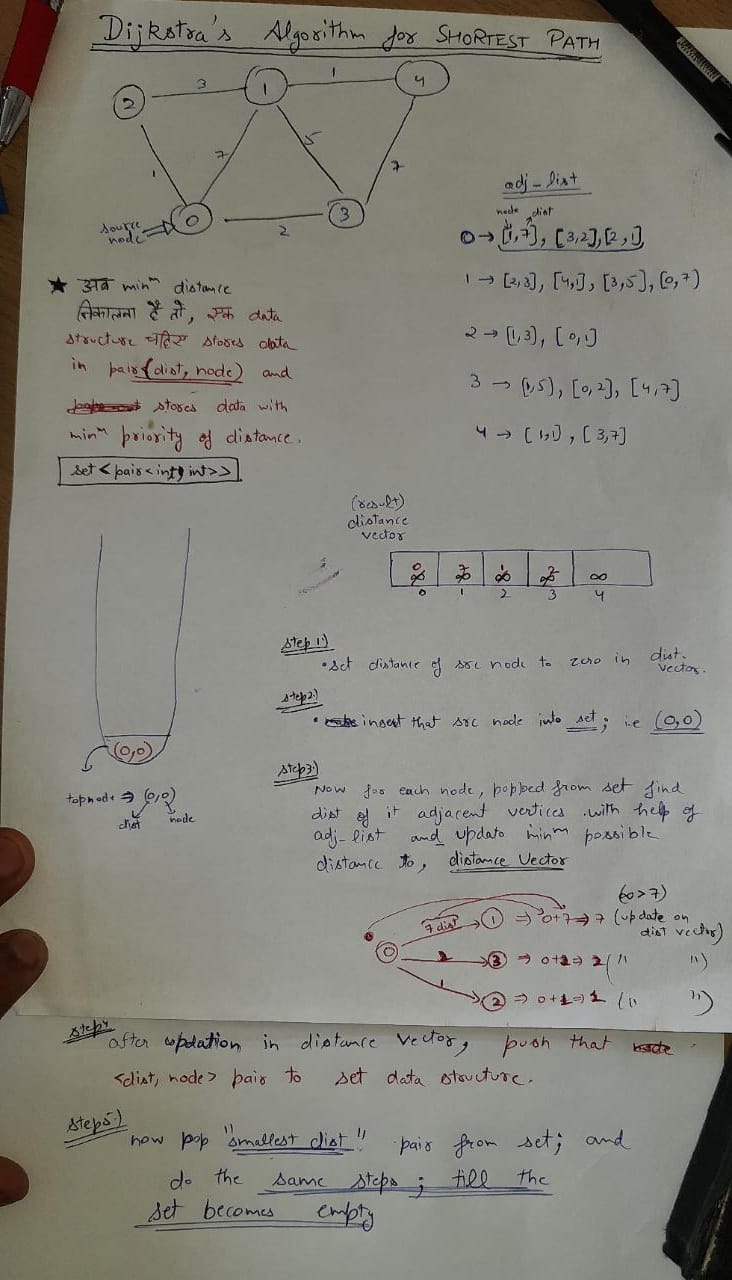 Dijkstra's Algorithm for SHORTEST PATH
2 3 1 1 4
1 7 5 7
source node 0 2 3
adj-list
node dist
0 → [1,7], [3,2], [2,1]
1 → [2,3], [4,1], [3,5], [0,7]
2 → [1,3], [0,1]
3 → [1,5], [0,2], [4,7]
4 → [1,1], [3,7]
★ अब minᵐ distance
निकालना है तो, एक data
structure चहिए stores data
in pair (dist, node) and
stores data with
minᵐ priority of distance.
set<pair<int, int>>
(result)
distance
vector
0 7 1 2
∞ ∞ ∞ ∞ ∞
0 1 2 3 4
step 1:)
• set distance of src node to zero in dist. vector.
step 2:)
• insert that src node into set; i.e (0,0)
(0,0)
topnode ⇒ (0,0)
dist node
step 3:)
Now for each node, popped from set find
dist of it adjacent vertices with help of
adj-list and update minᵐ possible
distance to, distance Vector
(∞>7)
0 7 dist → 1 ⇒ 0+7 ⇒ 7 (update on dist vector)
2 → 3 ⇒ 0+2 ⇒ 2 (" ")
1 → 2 ⇒ 0+1 ⇒ 1 (" ")
step4
after updation in distance vector, push that node
<dist, node> pair to set data structure.
step5:)
now pop "smallest dist" pair from set; and
do the same steps; till the
set becomes empty